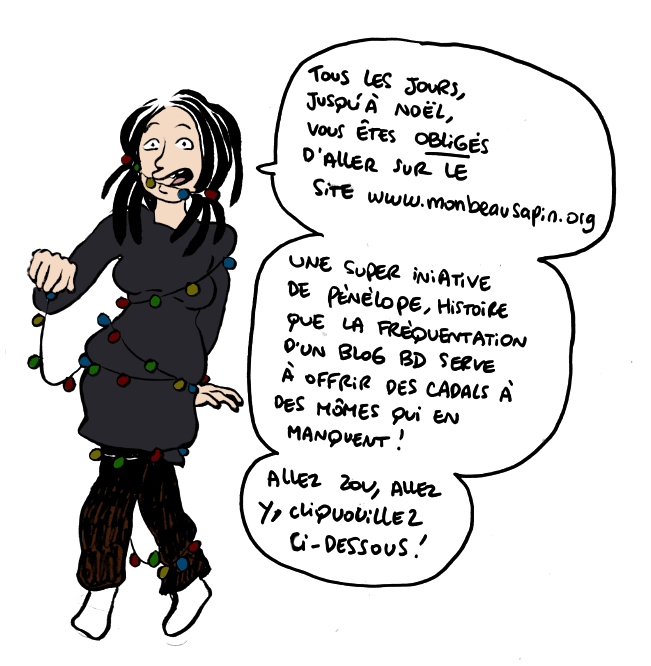 TOUS LES JOURS,
JUSQU'À NOËL,
VOUS ÊTES OBLIGÉS
D'ALLER SUR LE
SITE www.monbeausapin.org
UNE SUPER INIATIVE
DE PÉNÉLOPE, HISTOIRE
QUE LA FRÉQUENTATION
D'UN BLOG BD SERVE
À OFFRIR DES CADALS À
DES MÔMES QUI EN
MANQUENT !
ALLEZ ZOU, ALLEZ
Y, CLIQUOUILLEZ
CI-DESSOUS !